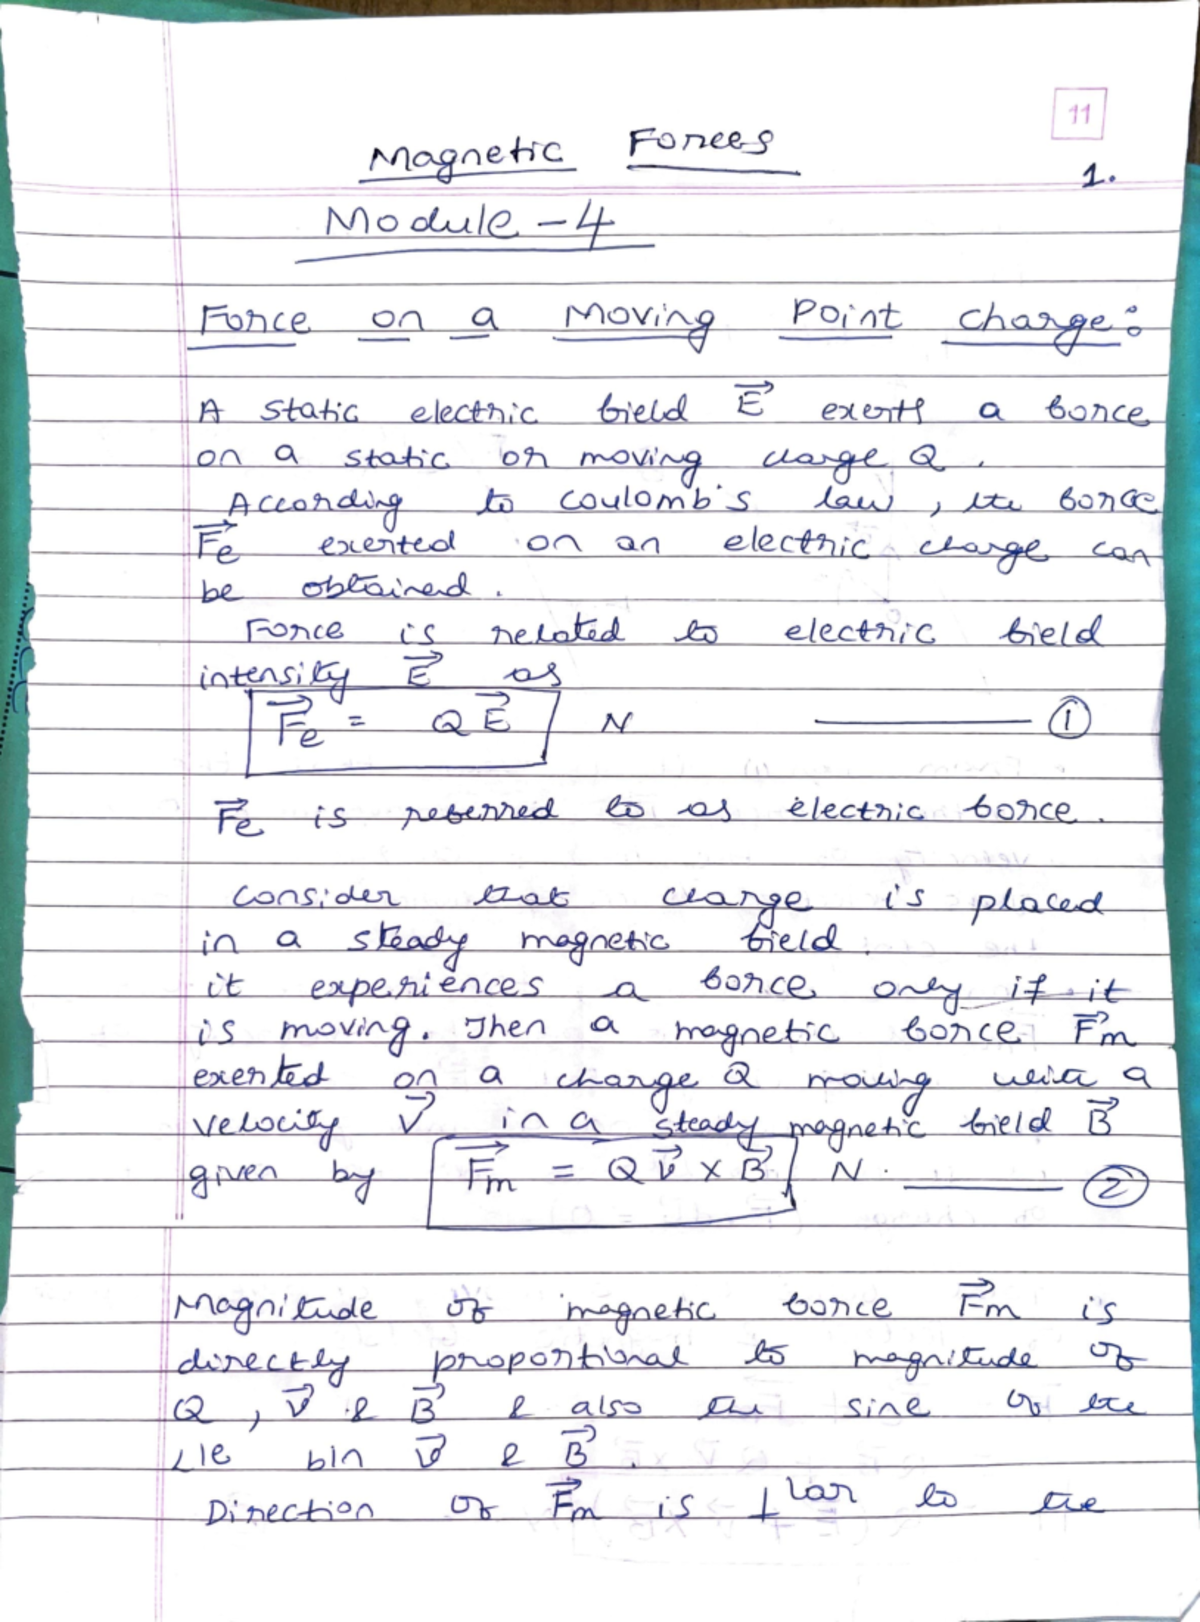 11
Magnetic Forces
1.
Module - 4
Force on a Moving Point charge:
A static electric field E⃗ exerts a force
on a static or moving charge Q.
According to coulomb's law, the force
F⃗e exerted on an electric charge can
be obtained.
Force is related to electric field
intensity E⃗ as
F⃗e = QE⃗ N ——— ①
F⃗e is referred to as electric force.
consider that charge is placed
in a steady magnetic field.
it experiences a force only if it
is moving. Then a magnetic force F⃗m
exerted on a charge Q moving with a
velocity V⃗ in a steady magnetic field B⃗
given by F⃗m = Q V⃗ × B⃗ N. ——— ②
Magnitude of magnetic force F⃗m is
directly proportional to magnitude of
Q, V⃗ & B⃗ & also the sine of the
∠le b/n V⃗ & B⃗.
Direction of F⃗m is ⊥lar to the